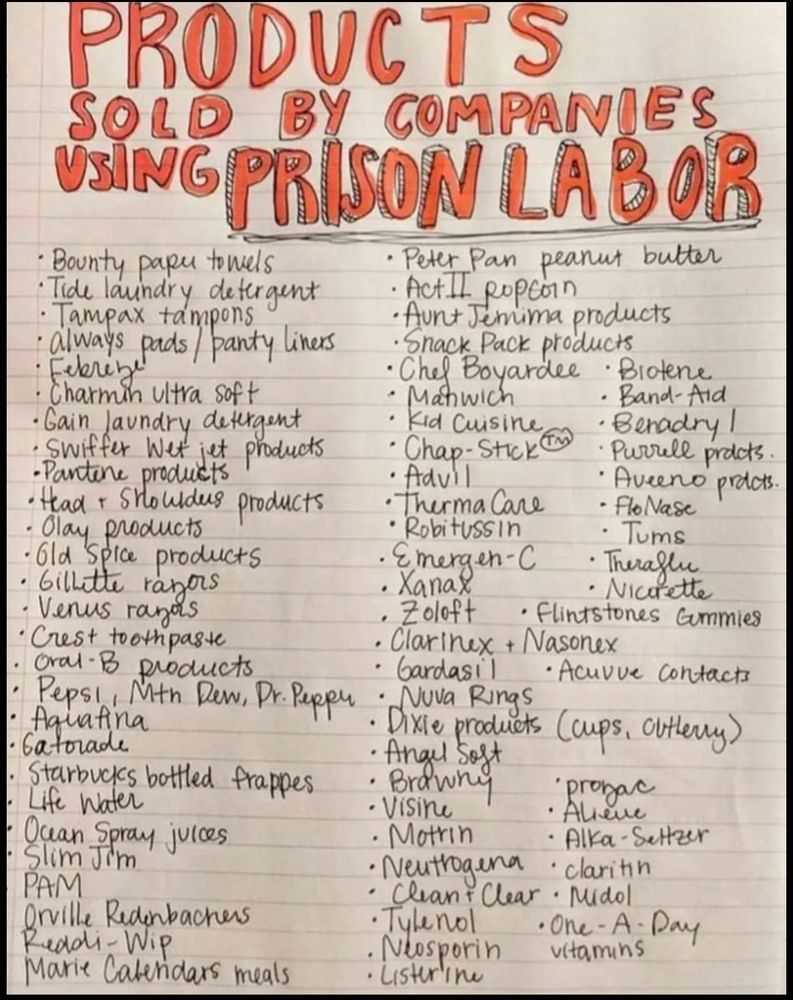 PRODUCTS
SOLD BY COMPANIES
USING PRISON LABOR
• Bounty paper towels
• Tide laundry detergent
• Tampax tampons
• always pads / panty liners
• Febreze
• Charmin ultra soft
• Gain laundry detergent
• Swiffer Wet jet products
• Pantene products
• Head + Shoulders products
• Olay products
• Old Spice products
• Gillette razors
• Venus razors
• Crest toothpaste
• Oral-B products
• Pepsi, Mtn Dew, Dr. Pepper
• Aquafina
• Gatorade
• Starbucks bottled frappes
• Life Water
• Ocean Spray juices
• Slim Jim
PAM
Orville Redenbachers
Reddi-Wip
Marie Calendars meals
• Peter Pan peanut butter
• Act II popcorn
• Aunt Jemima products
• Snack Pack products
• Chef Boyardee
• Manwich
• Kid Cuisine
• Chap-Stick TM
• Advil
• ThermaCare
• Robitussin
• Emergen-C
• Xanax
• Zoloft
• Clarinex + Nasonex
• Gardasil
• Nuva Rings
• Dixie products (cups, cutlerry)
• Angel Soft
• Brawny
• Visine
• Motrin
• Neutrogena
• Clean + Clear
• Tylenol
• Neosporin
• Listerine
• Biotene
• Band-Aid
• Benadryl
• Purrell prdcts.
• Aveeno prdcts.
• FloNase
• Tums
• Theraflu
• Nicorette
• Flintstones Gummies
• Acuvue Contacts
• prozac
• Alieve
• Alka-Seltzer
• claritin
• Midol
• One-A-Day
vitamins